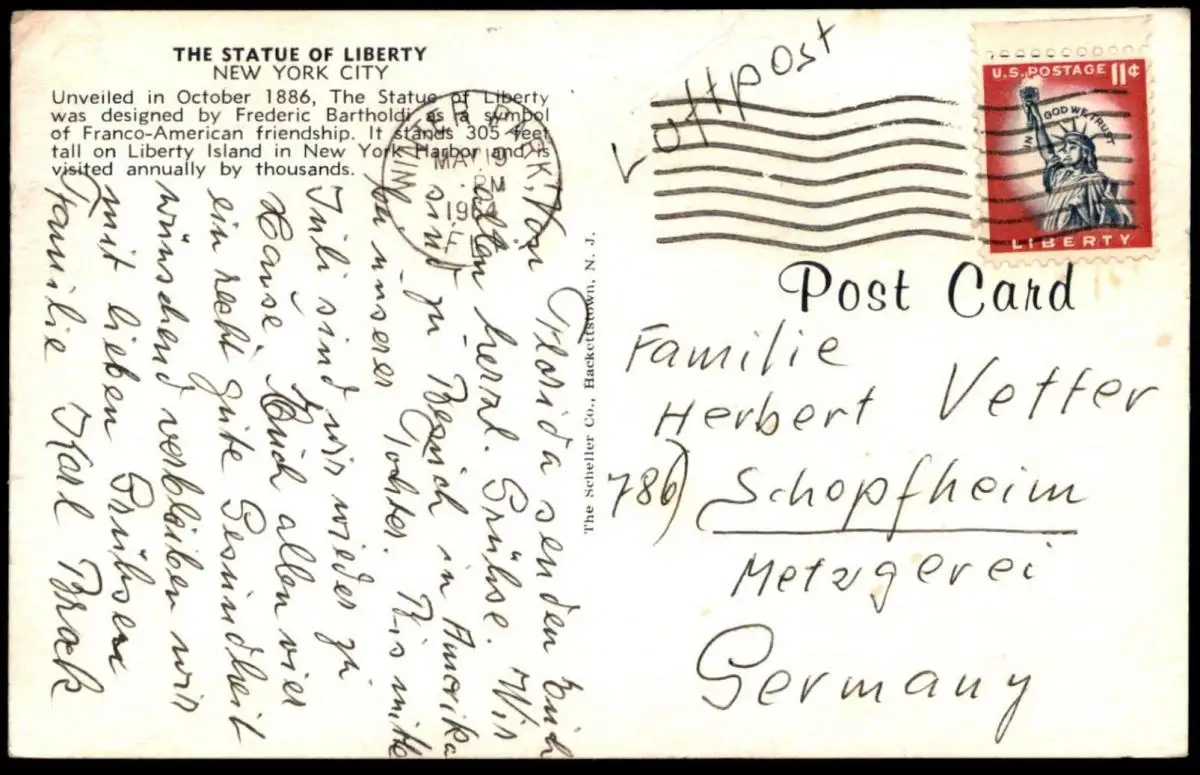 THE STATUE OF LIBERTY
NEW YORK CITY
Unveiled in October 1886, The Statue of Liberty
was designed by Frederic Bartholdi as a symbol
of Franco-American friendship. It stands 305 feet
tall on Liberty Island in New York Harbor and is
visited annually by thousands.
Von Florida senden Euch
allen herzl. Grühse. Wir
sind zu Besuch in Amerika
bei unserer Tochter. Bis mitte
Juli sind wir wieder zu
Hause. Euch allen vier
ein recht gute Gesundheit
wünschend verbleiben wir
mit lieben Grühsen
Familie Karl Brack
The Scheller Co., Hackettstown, N. J.
WINTER PARK,
MAY 19
PM
196
F
Luftpost
U.S. POSTAGE 11¢
IN GOD WE TRUST
LIBERTY
Post Card
Familie
Herbert Vetter
786) Schopfheim
Metzgerei
Germany